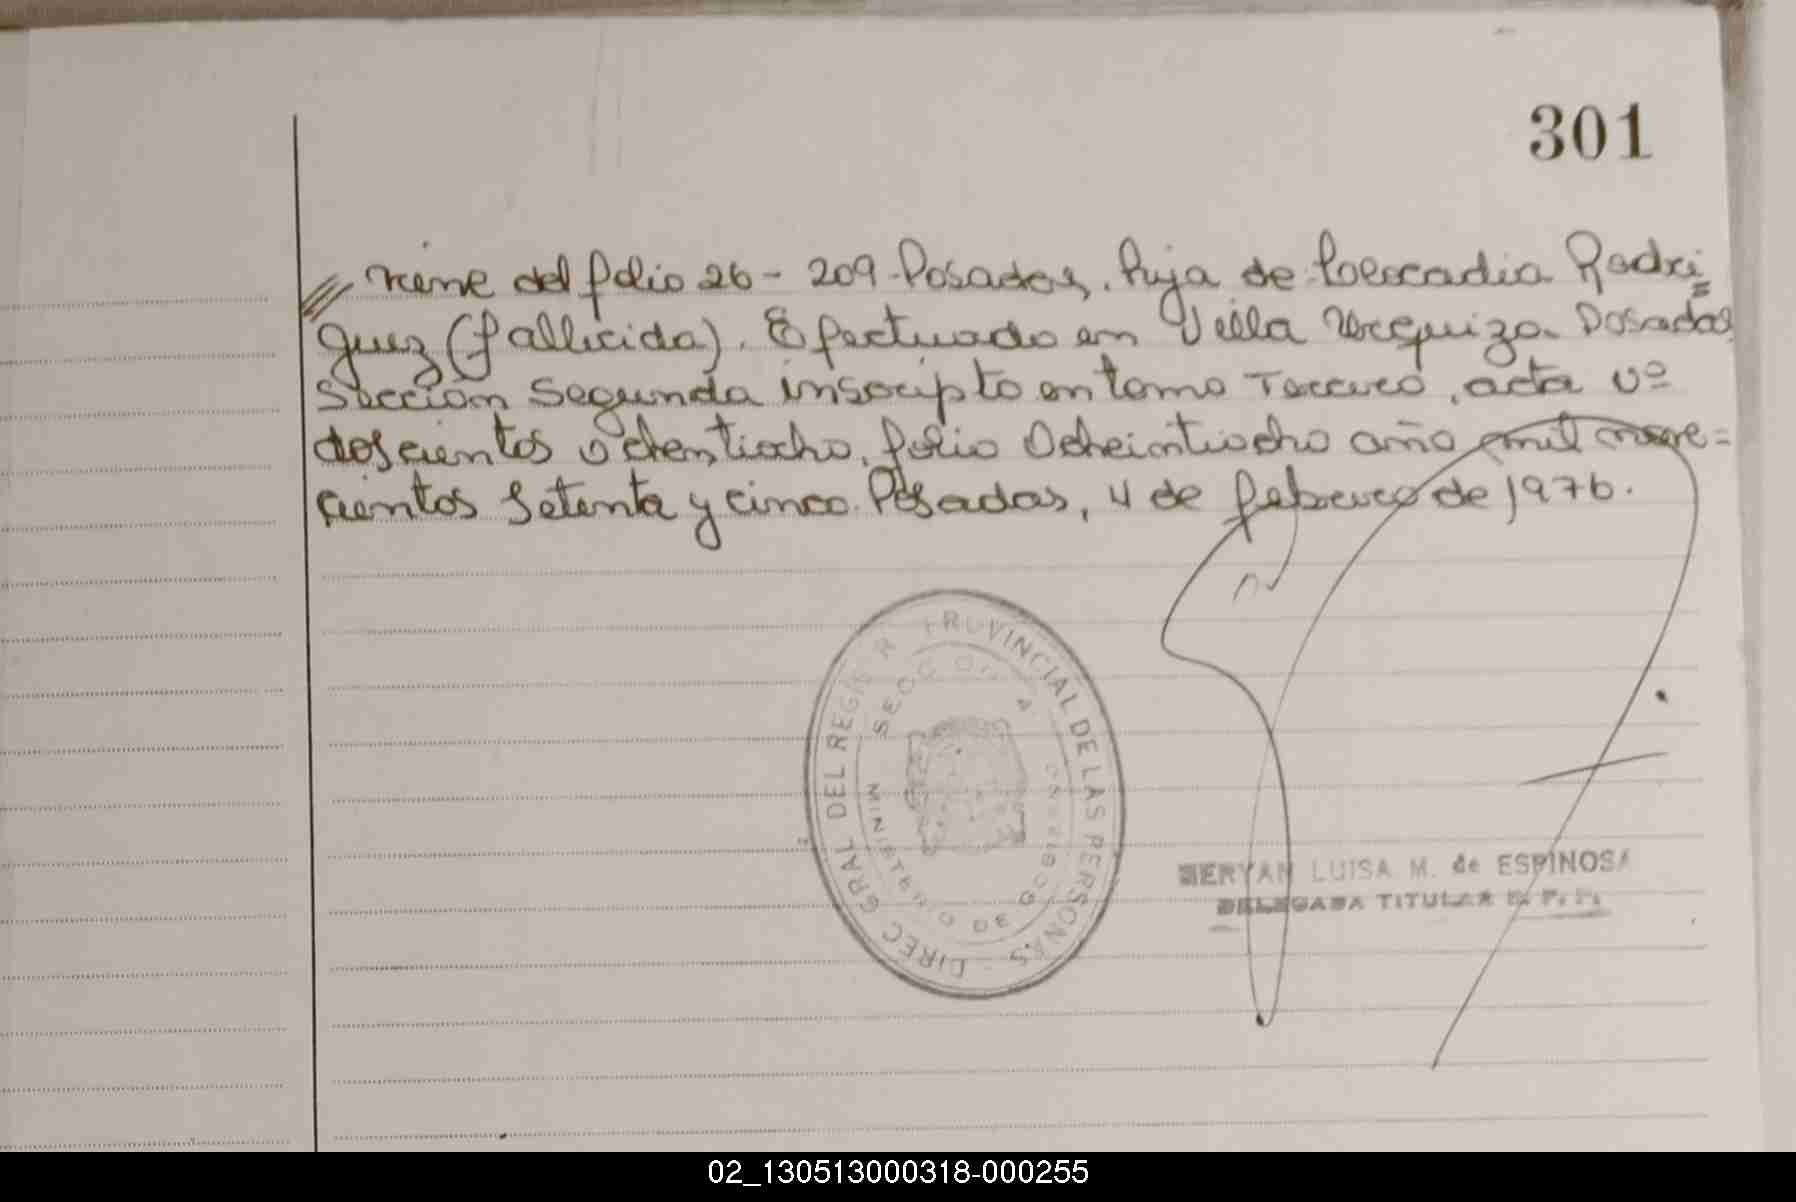 301
viene del folio 26 - 209 - Posadas, hija de Leocadia Rodri=
guez (fallicida). Efectuado en Villa Urquiza Posadas
Sección Segunda inscripto en tomo Tercero, acta Nº
doscientos ochentiocho, folio Ochentiocho año mil nove=
cientos setenta y cinco. Posadas, 4 de febrero de 1976.
DIREC GRAL DEL REGIS R PROVINCIAL DE LAS PERSONAS
MINISTERIO DE GOBIERNO
LUISA M. de ESPINOSA
DELEGADA TITULAR
02_130513000318-000255